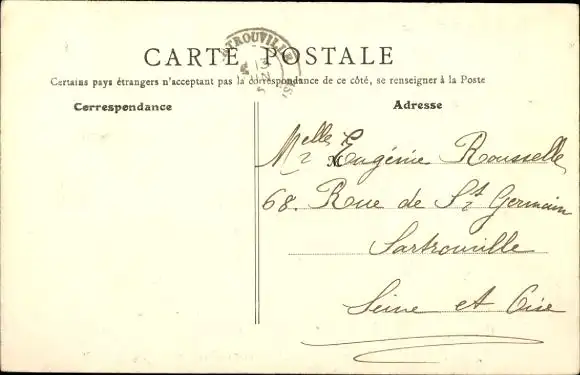 CARTE POSTALE
Certains pays étrangers n'acceptant pas la correspondance de ce côté, se renseigner à la Poste
Correspondance
Adresse
SARTROUVILLE
13
Melle Eugénie Rousselle
68. Rue de St Germain
Sartrouville
Seine et Oise